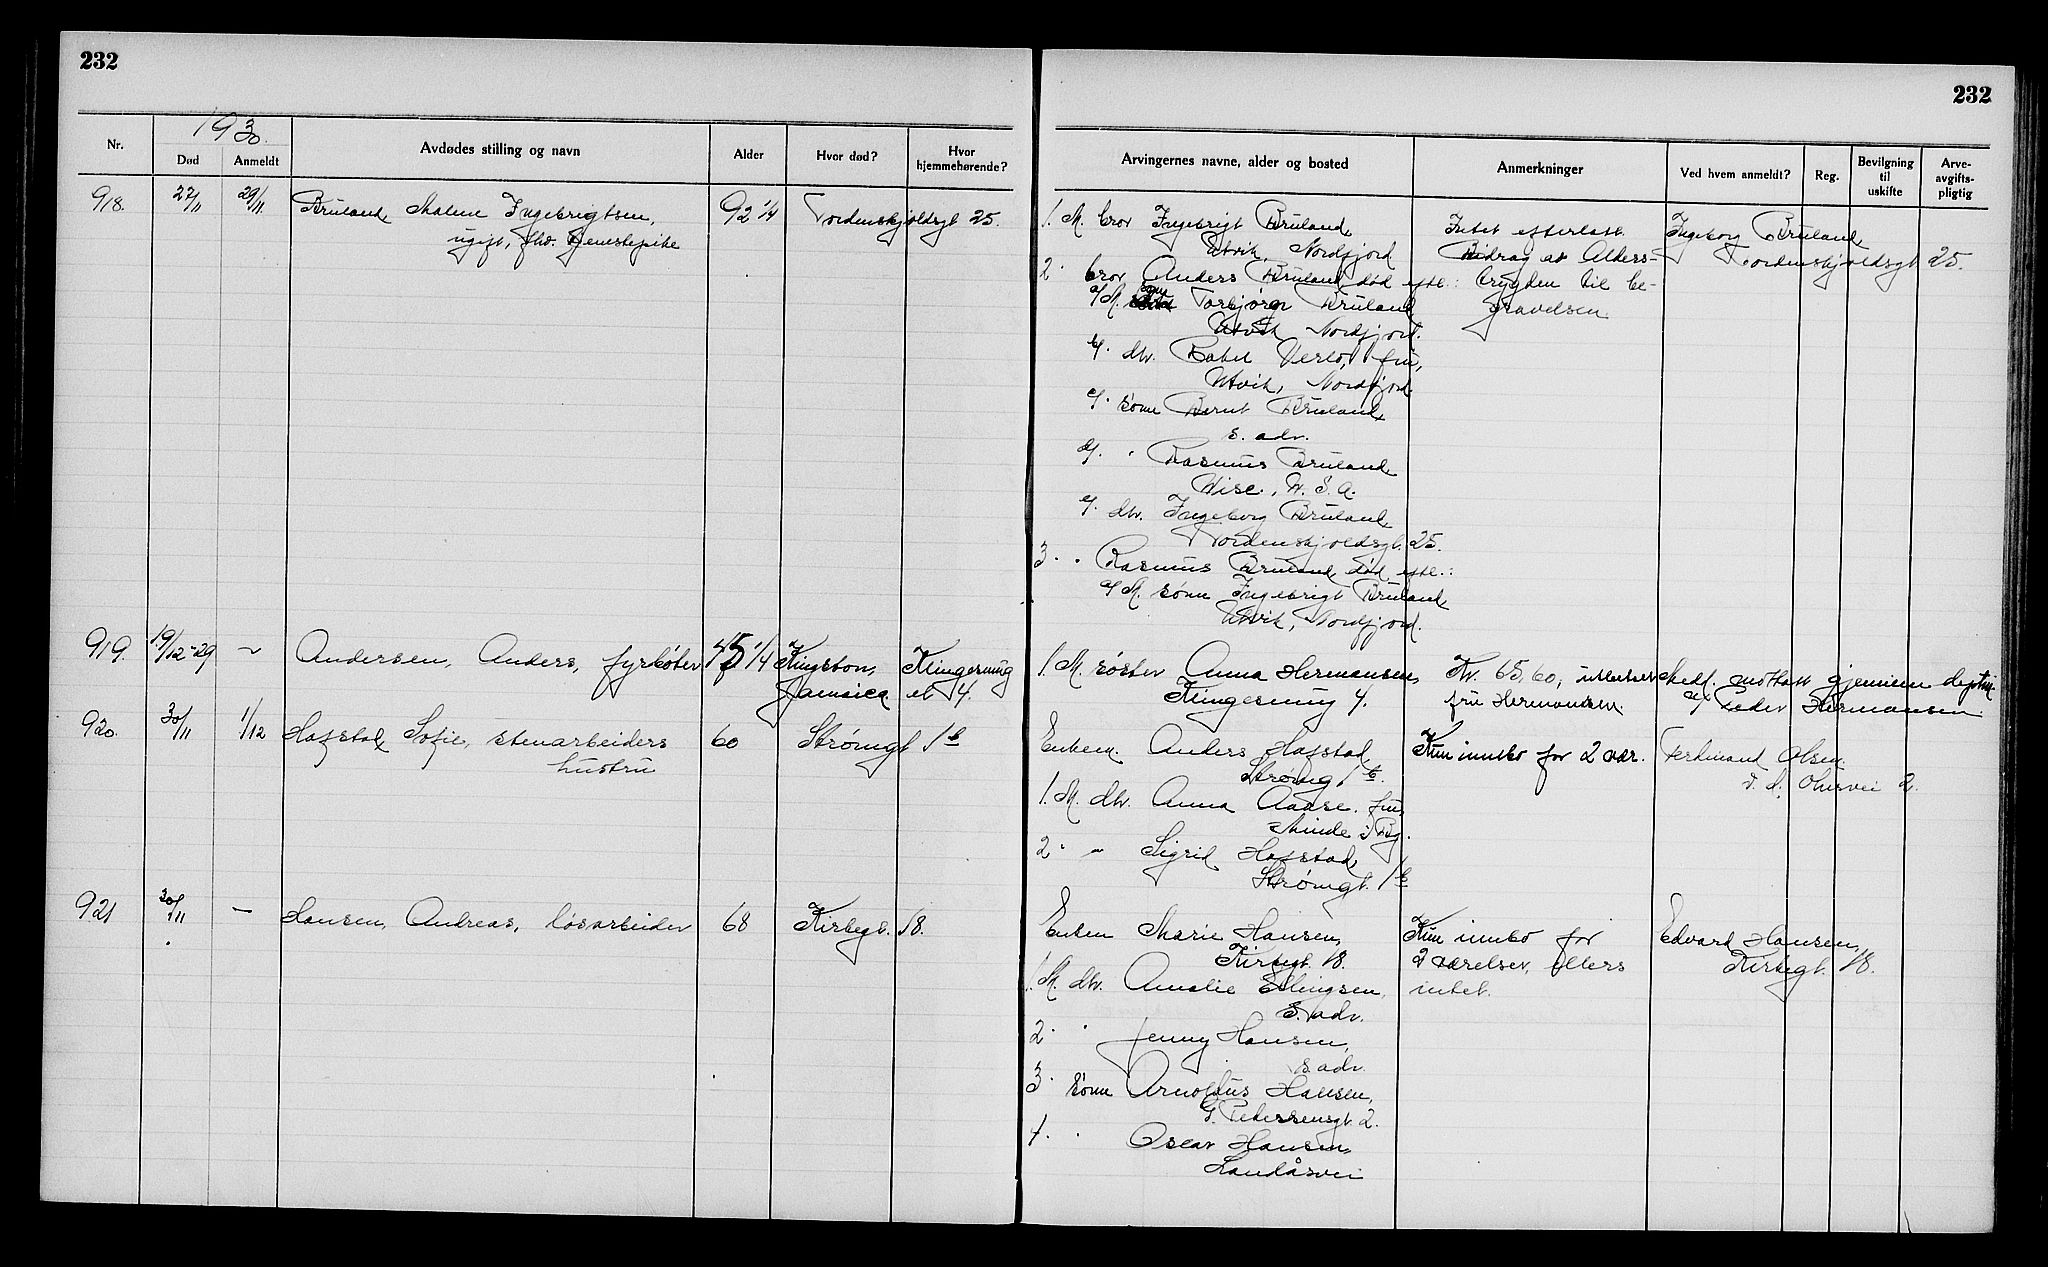 232
232
1930.
Nr.
Død
Anmeldt
Avdødes stilling og navn
Alder
Hvor død?
Hvor hjemmehørende?
Arvingernes navne, alder og bosted
Anmerkninger
Ved hvem anmeldt?
Reg.
Bevilgning til uskifte
Arve-avgifts-pligtig
918. 27/11 29/11 Bruland Malene Ingebrigtsen, 92 1/4 Tordenskjoldsgt 25.
ugift, fhv. tjenestepike
1. M. bror Ingebrigt Bruland
Utvik, Nordfjord
2 " bror Anders Bruland død eftl.:
a/ M. Torbjørn Bruland
Utvik Nordfjord.
b/. dtr. Rakel Verlo, fru,
Utvik, Nordfjord
c/. sønn Bernt Bruland
s. adr.
d/. " Rasmus Bruland
Wisc., U. S. A.
e/. dtr. Ingeborg Bruland
Tordenskjoldsgt. 25.
3 " " Rasmus Bruland død, eftl.:
a/ M. sønn Ingebrigt Bruland
Utvik, Nordfjord.
Intet efterlatt.
Bidrag av Alders-
trygden til be-
gravelsen.
Ingeborg Bruland
Tordenskjoldsgt 25.
919. 19/12-29 " Andersen, Anders, fyrbøter 45 1/4 Kingston, Klingesmug
Jamaica et 4.
1. M. søster Anna Hermansen,
Klingesmug 4.
Kr. 65,60,
fru Hermansen.
Skedf. mottatt gjennem
Peder Hermansen.
920. 30/11 1/12 Hafstad Sofie, stenarbeiders 60 Strømgt 1 b
hustru
Enkem. Anders Hafstad
Strømgt. 1 b.
1. M. dtr. Anna Aaase. fru,
Minde i Bg.
2 " " Sigrid Hafstad,
Strømgt. 1 b
Kun innbo for 2 vær.
Ferdinand Olsen
Ohrsvei 2.
921 30/11 — Hansen, Andreas, løsarbeider 68 Kirkegt. 18.
Enken Marie Hansen,
Kirkegt. 18.
1. M. dtr. Amalie Ellingsen,
S. adr.
2 " " Jenny Hansen,
s. adr.
3 " sønn Arnoldus Hansen,
G. Pedersensgt. 2.
4. " Oscar Hansen,
Landåsvei
Kun innbo for
2 værelser, ellers
intet.
Edvard Hansen,
Kirkegt. 18.